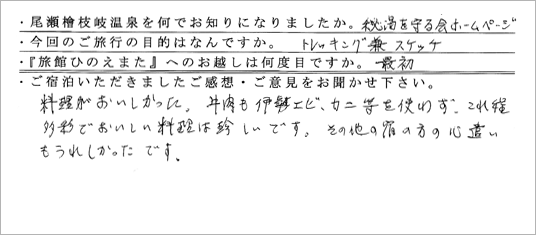 ・尾瀬檜枝岐温泉を何でお知りになりましたか。秘湯を守る会ホームページ
・今回のご旅行の目的はなんですか。 トレッキング兼スケッチ
・『旅館ひのえまた』へのお越しは何度目ですか。 最初
・ご宿泊いただきましたご感想・ご意見をお聞かせ下さい。
料理がおいしかった。牛肉も伊勢エビ、カニ等を使わず、これ程
多彩でおいしい料理は珍しいです。その他の宿の方の心遣い
もうれしかったです。